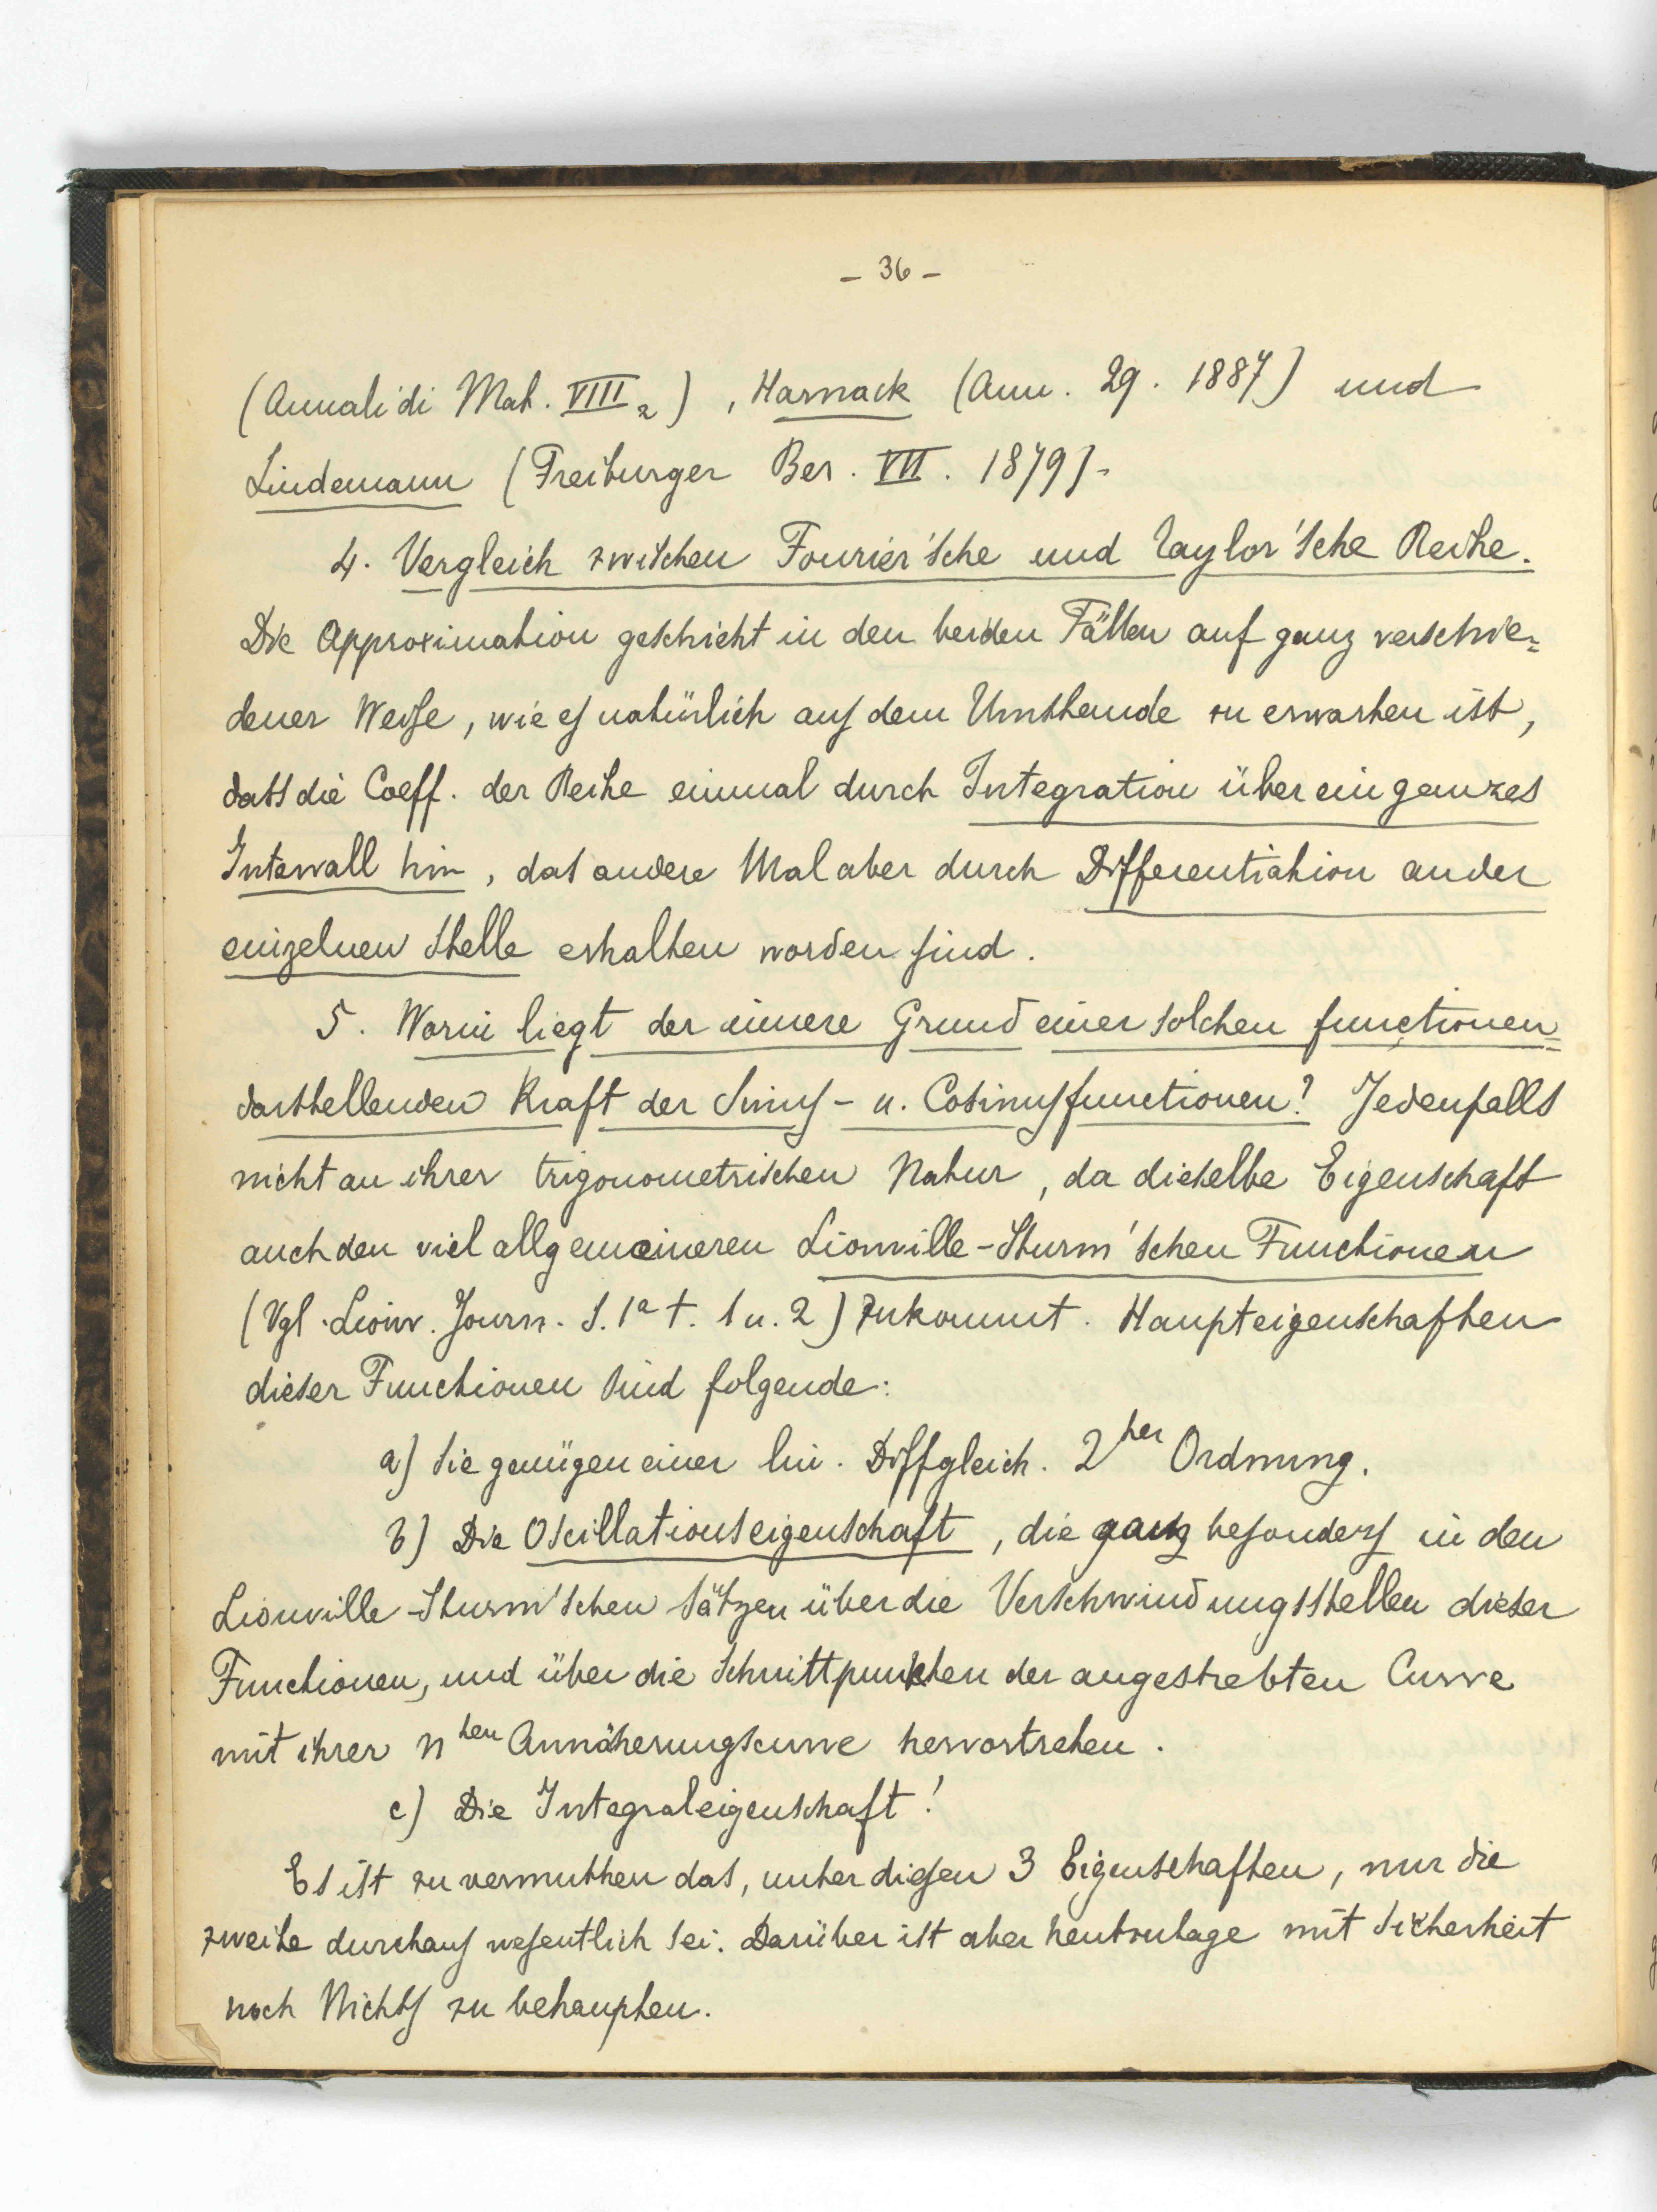 - 36 -
(Annali di Mat. VIII 2), Harnack (Ann. 29. 1887) und
Lindemann (Freiburger Ber. VII. 1879).
4. Vergleich zwischen Fourier'sche und Taylor'sche Reihe.
Die Approximation geschieht in den beiden Fällen auf ganz verschie=
dener Weise, wie es natürlich aus dem Umstande zu erwarten ist,
dass die Coeff. der Reihe einmal durch Integration über ein ganzes
Intervall hin, das andere Mal aber durch Differentiation an der
einzelnen Stelle erhalten worden sind.
5. Worin liegt der innere Grund einer solchen functionen=
darstellenden Kraft der Sinus- u. Cosinusfunctionen? Jedenfalls
nicht an ihrer trigonometrischen Natur, da dieselbe Eigenschaft
auch den viel allgemeineren Liouville-Sturm'schen Functionen
(Vgl. Liouv. Journ. S. 1a t. 1 u. 2) zukommt. Haupteigenschaften
dieser Functionen sind folgende:
a) Sie genügen einer lin. Diffgleich. 2ter Ordnung.
b) Die Oscillationseigenschaft, die ganz besonders in den
Liouville-Sturm'schen Sätzen über die Verschwindungsstellen dieser
Functionen, und über die Schnittpunkten der angestrebten Curve
mit ihrer nten Annäherungscurve hervortreten.
c) Die Integraleigenschaft!
Es ist zu vermuthen das, unter diesen 3 Eigenschaften, nur die
zweite durchaus wesentlich sei. Darüber ist aber heutzutage mit Sicherheit
noch Nichts zu behaupten.